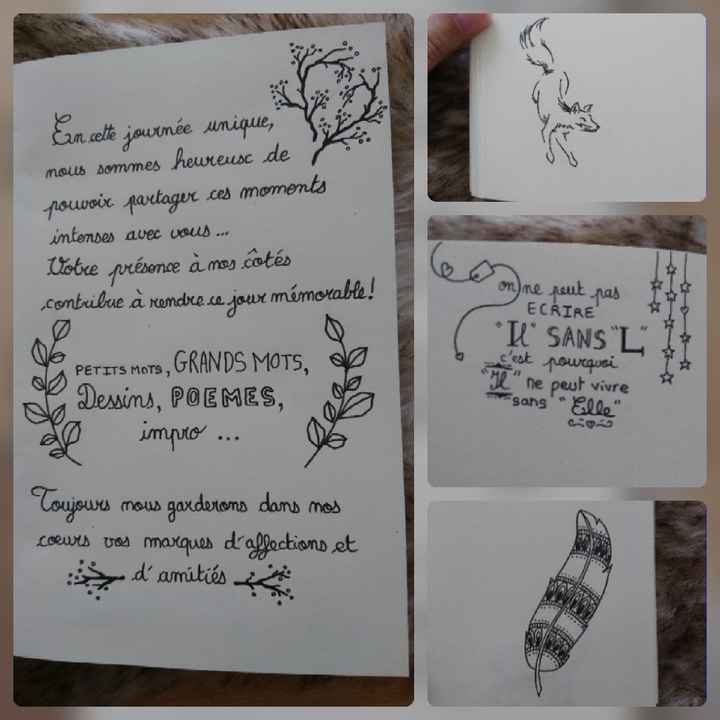 En cette journée unique,
nous sommes heureuse de
pouvoir partager ces moments
intenses avec vous ...
Votre présence à nos côtés
contribue à rendre ce jour mémorable!
PETITS MOTS, GRANDS MOTS,
Dessins, POEMES,
impro ...
Toujours nous garderons dans nos
cœurs vos marques d'affections et
d'amitiés
on ne peut pas
ECRIRE
"Il" SANS "L"
c'est pourquoi
"Il" ne peut vivre
sans "Elle"